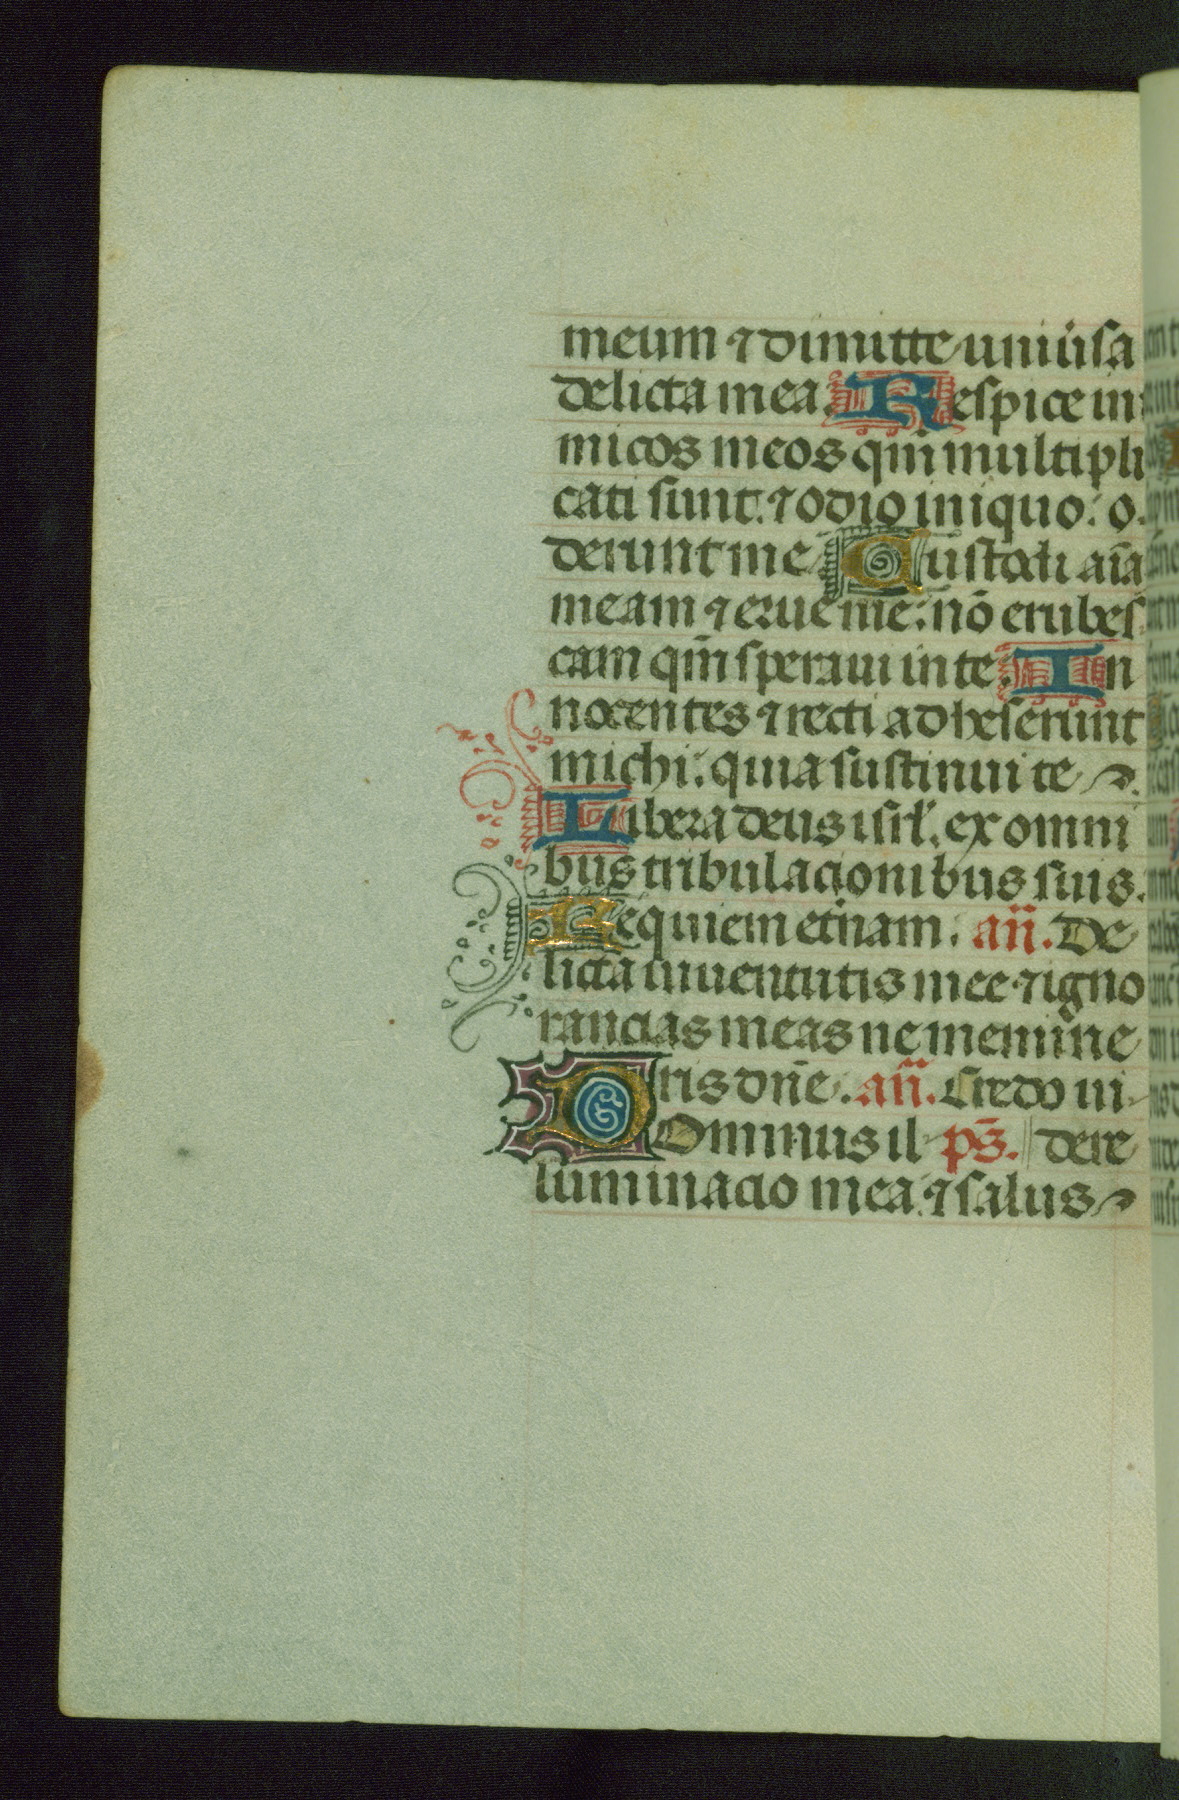 meum ⁊ dimitte uniu̇sa
delicta mea. Respice in
micos meos qm̄ multipli
cati sunt: ⁊ odio iniquo: o
derunt me. Custodi aīa
meam ⁊ erue me: nō erubes
cam qm̄ speraui in te. In
nocentes ⁊ recti adheserunt
michi: quia sustinui te
Libera deus isrl̓. ex omni
bus tribulacionibus suis.
Requiem et̓nam. añ. De
licta iuuentutis mee ⁊ igno
rancias meas ne memine
ris dn̄e. añ. Credo ui
Ominus il ps̄. dere
luminacio mea ⁊ salus